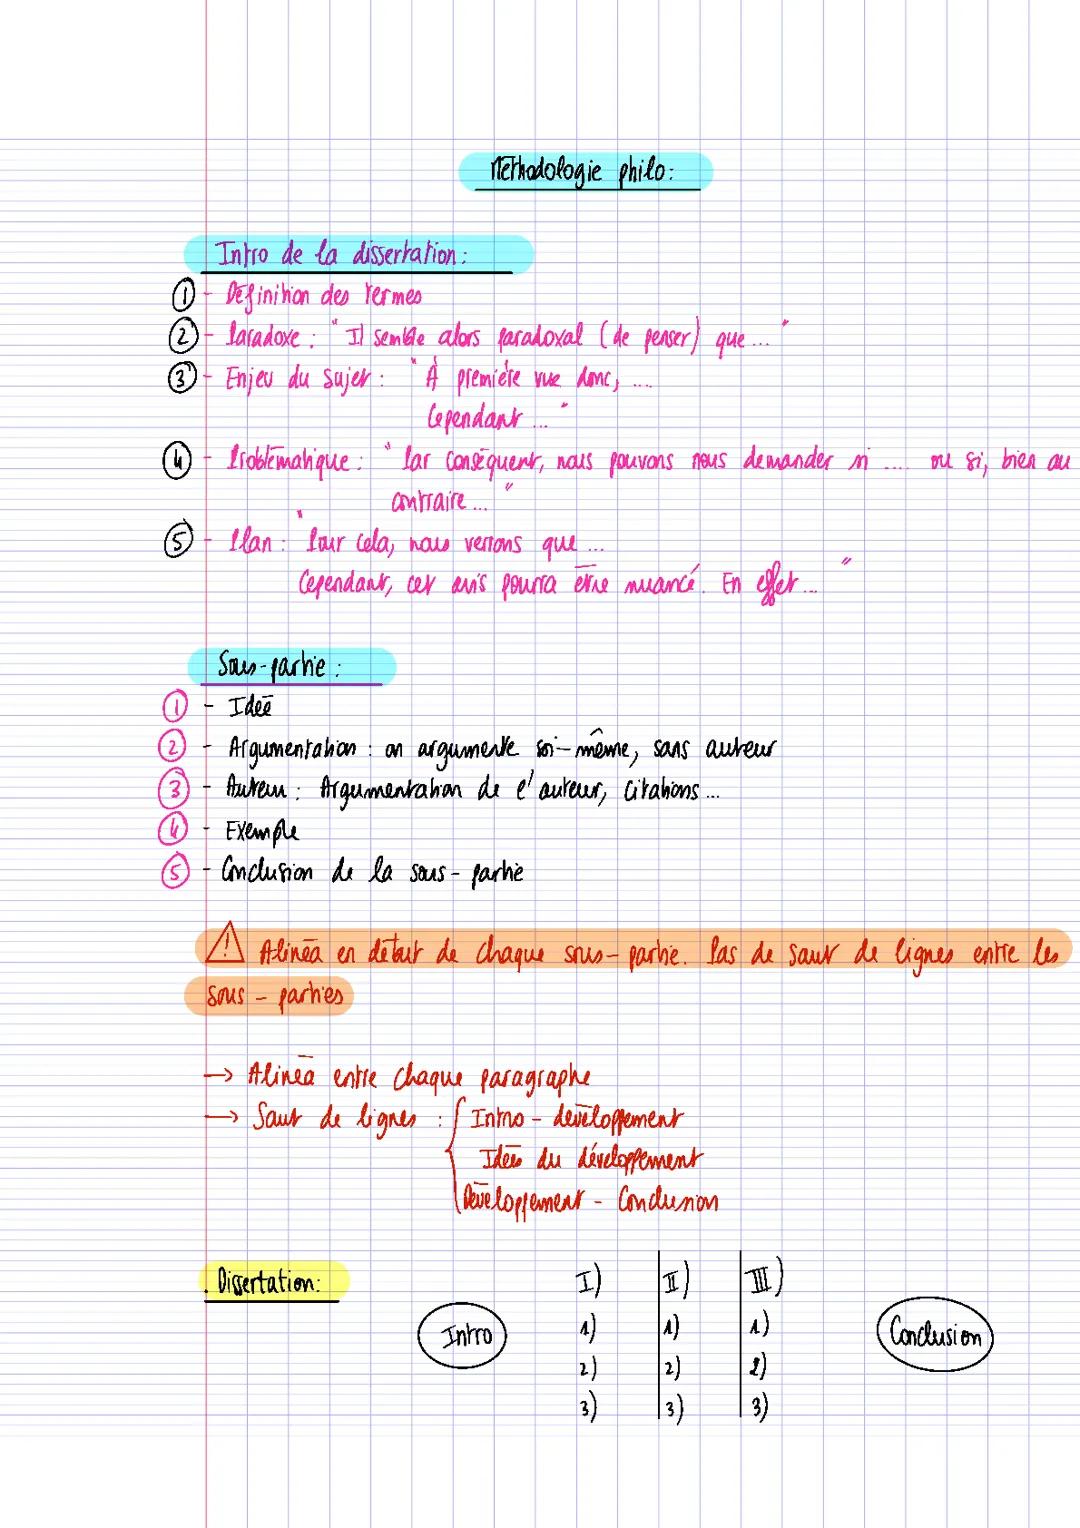 Méthodologie philo :
Intro de la dissertation :
① - Définition des termes
② - Paradoxe : " Il semble alors paradoxal (de penser) que ... "
③ - Enjeu du sujet : " À première vue donc, ....
Cependant ... "
④ - Problématique : " Par conséquent, nous pouvons nous demander si .... ou si, bien au
contraire ... "
⑤ - Plan : " Pour cela, nous verrons que ...
Cependant, cet avis pourra être nuancé. En effet ... "
Sous-partie :
① - Idée
② - Argumentation : on argumente soi-même, sans auteur
③ - Auteur : Argumentation de l'auteur, Citations ...
④ - Exemple
⑤ - Conclusion de la sous-partie
⚠ Alinéa en début de chaque sous-partie. Pas de saut de lignes entre les
sous-parties
→ Alinéa entre chaque paragraphe
→ Saut de lignes : { Intro - développement
Idées du développement
Développement - Conclusion
. Dissertation :
I) II) III)
Intro 1) 1) 1) Conclusion
2) 2) 2)
3) 3) 3)